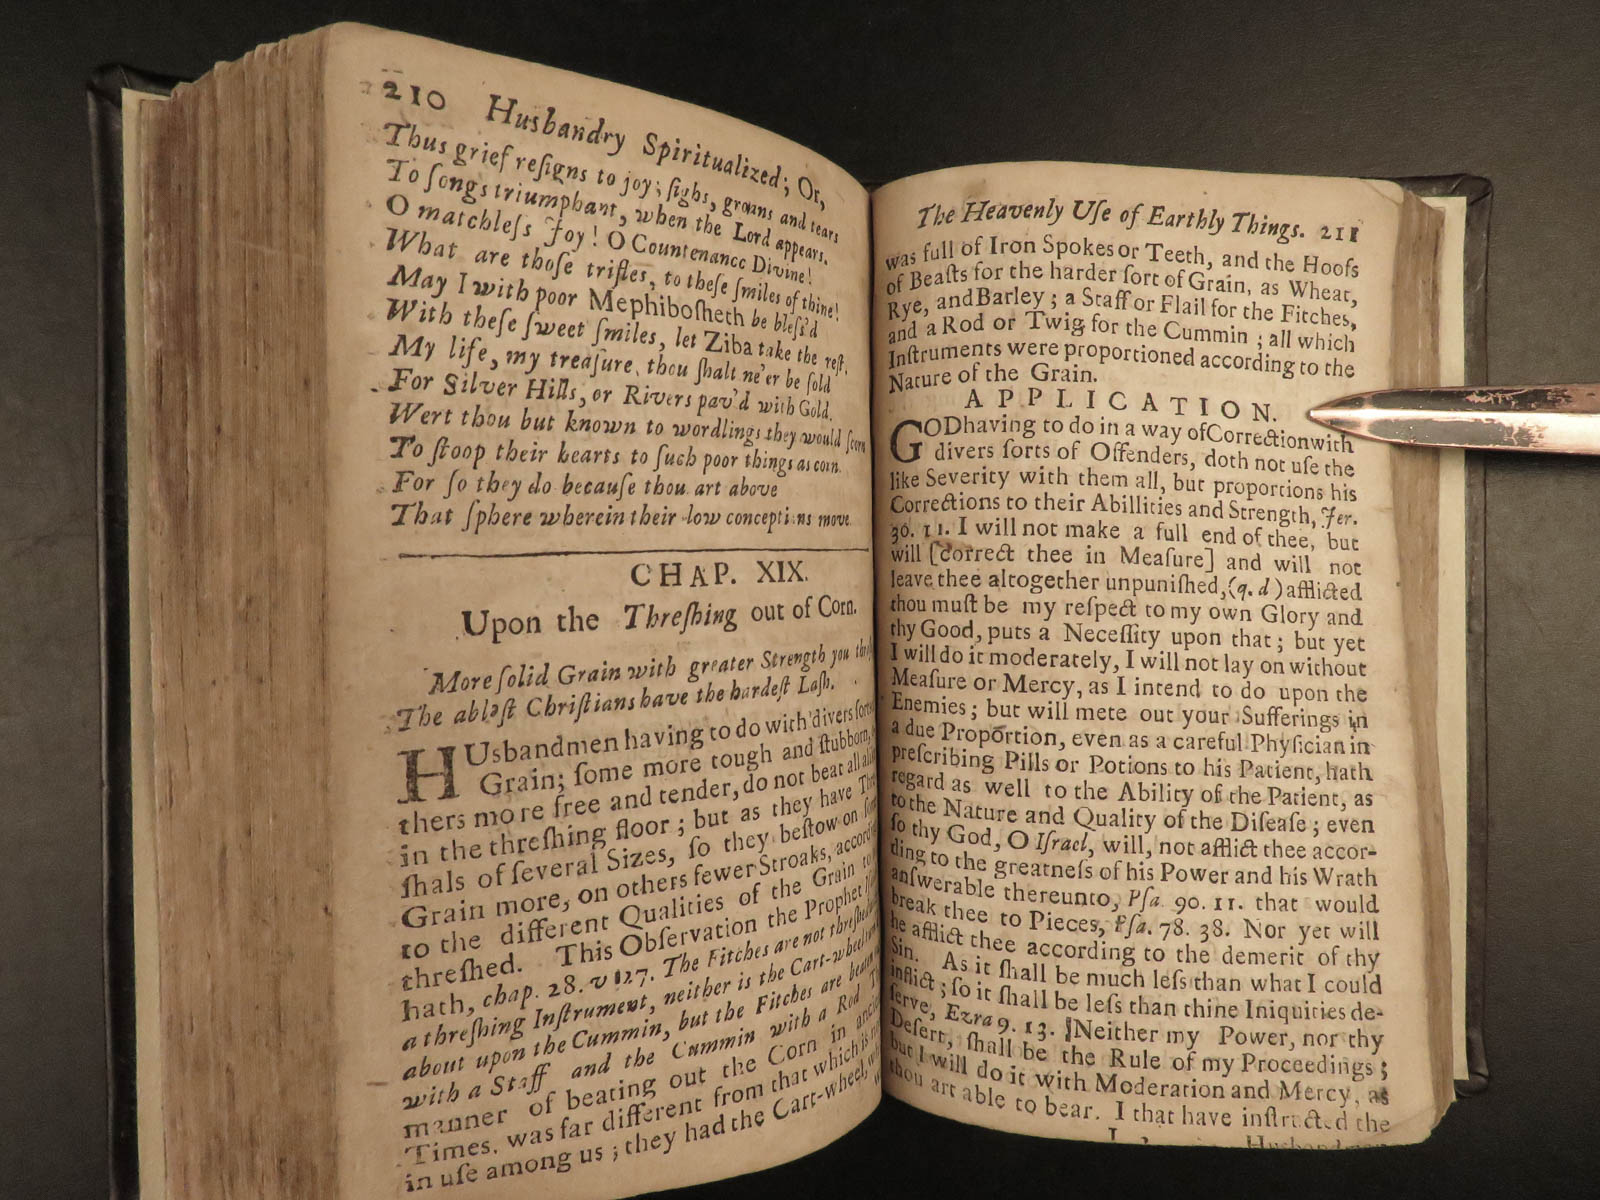 210 Husbandry Spiritualized; Or,
Thus grief reſigns to joy; ſighs, groans and tears
To ſongs triumphant, when the Lord appears.
O matchleſs Joy! O Countenance Divine!
What are thoſe trifles, to theſe ſmiles of thine!
May I with poor Mephiboſheth be bleſs'd
With theſe ſweet ſmiles, let Ziba take the reſt.
My life, my treaſure, thou ſhalt ne'er be ſold
For Silver Hills, or Rivers pav'd with Gold.
Wert thou but known to wordlings they would ſcorn
To ſtoop their hearts to ſuch poor things as coin.
For ſo they do becauſe thou art above
That ſphere wherein their low conceptions move.
CHAP. XIX.
Upon the Threſhing out of Corn.
More ſolid Grain with greater Strength you
The ableſt Chriſtians have the hardeſt Laſh.
HUsbandmen having to do with divers ſorts
Grain; ſome more tough and ſtubborn,
thers more free and tender, do not beat all
in the threſhing floor; but as they have
ſhals of ſeveral Sizes, ſo they beſtow on
Grain more, on others fewer Stroaks,
to the different Qualities of the Grain
threſhed. This Obſervation the Prophet
hath, chap. 28. v 27. The Fitches are not threſhed
a threſhing Inſtrument, neither is the Cart-wheel
about upon the Cummin, but the Fitches are beaten
with a Staff and the Cummin with a Rod
manner of beating out the Corn in
Times, was far different from that which is
in uſe among us; they had the Cart-wheel,
The Heavenly Uſe of Earthly Things. 211
was full of Iron Spokes or Teeth, and the Hoofs
of Beaſts for the harder ſort of Grain, as Wheat,
Rye, and Barley; a Staff or Flail for the Fitches,
and a Rod or Twig for the Cummin; all which
Inſtruments were proportioned according to the
Nature of the Grain.
APPLICATION.
GOD having to do in a way of Correction with
divers ſorts of Offenders, doth not uſe the
like Severity with them all, but proportions his
Corrections to their Abillities and Strength, Jer.
30. 11. I will not make a full end of thee, but
will [correct thee in Meaſure] and will not
leave thee altogether unpuniſhed, (q. d) afflicted
thou muſt be my reſpect to my own Glory and
thy Good, puts a Neceſſity upon that; but yet
I will do it moderately, I will not lay on without
Meaſure or Mercy, as I intend to do upon the
Enemies; but will mete out your Sufferings in
a due Proportion, even as a careful Phyſician in
preſcribing Pills or Potions to his Patient, hath
regard as well to the Ability of the Patient, as
to the Nature and Quality of the Diſeaſe; even
ſo thy God, O Iſrael, will, not afflict thee accor-
ding to the greatneſs of his Power and his Wrath
anſwerable thereunto, Pſa. 90. 11. that would
break thee to Pieces, Pſa. 78. 38. Nor yet will
he afflict thee according to the demerit of thy
Sin. As it ſhall be much leſs than what I could
inflict; ſo it ſhall be leſs than thine Iniquities de-
ſerve, Ezra 9. 13. Neither my Power, nor thy
Deſert, ſhall be the Rule of my Proceedings;
but I will do it with Moderation and Mercy, as
thou art able to bear. I that have inſtructed the
L 2 Husbandman